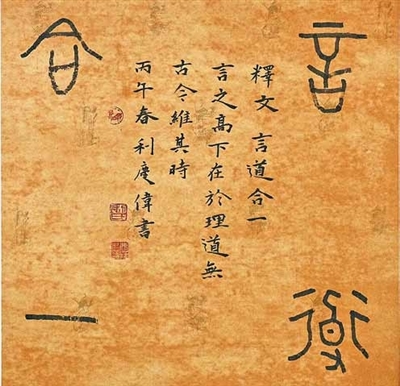 言道
合一
釋文 言道合一
言之高下在於理道無
古今維其時
丙午春利慶偉書